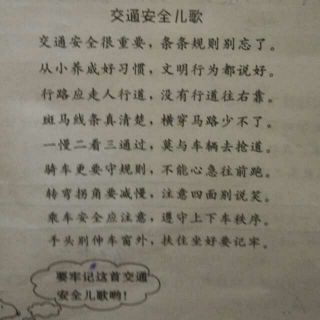 交通安全儿歌
交通安全很重要，条条规则别忘了。
从小养成好习惯，文明行为都说好。
行路应走人行道，没有行道往右靠。
斑马线条真清楚，横穿马路少不了。
一慢二看三通过，莫与车辆去抢道。
骑车更要守规则，不能心急往前跑。
转弯拐角要减慢，注意四面别说笑。
乘车安全应注意，遵守上下车秩序。
手头别伸车窗外，扶住坐好要记牢。
要牢记这首交通
安全儿歌哟！